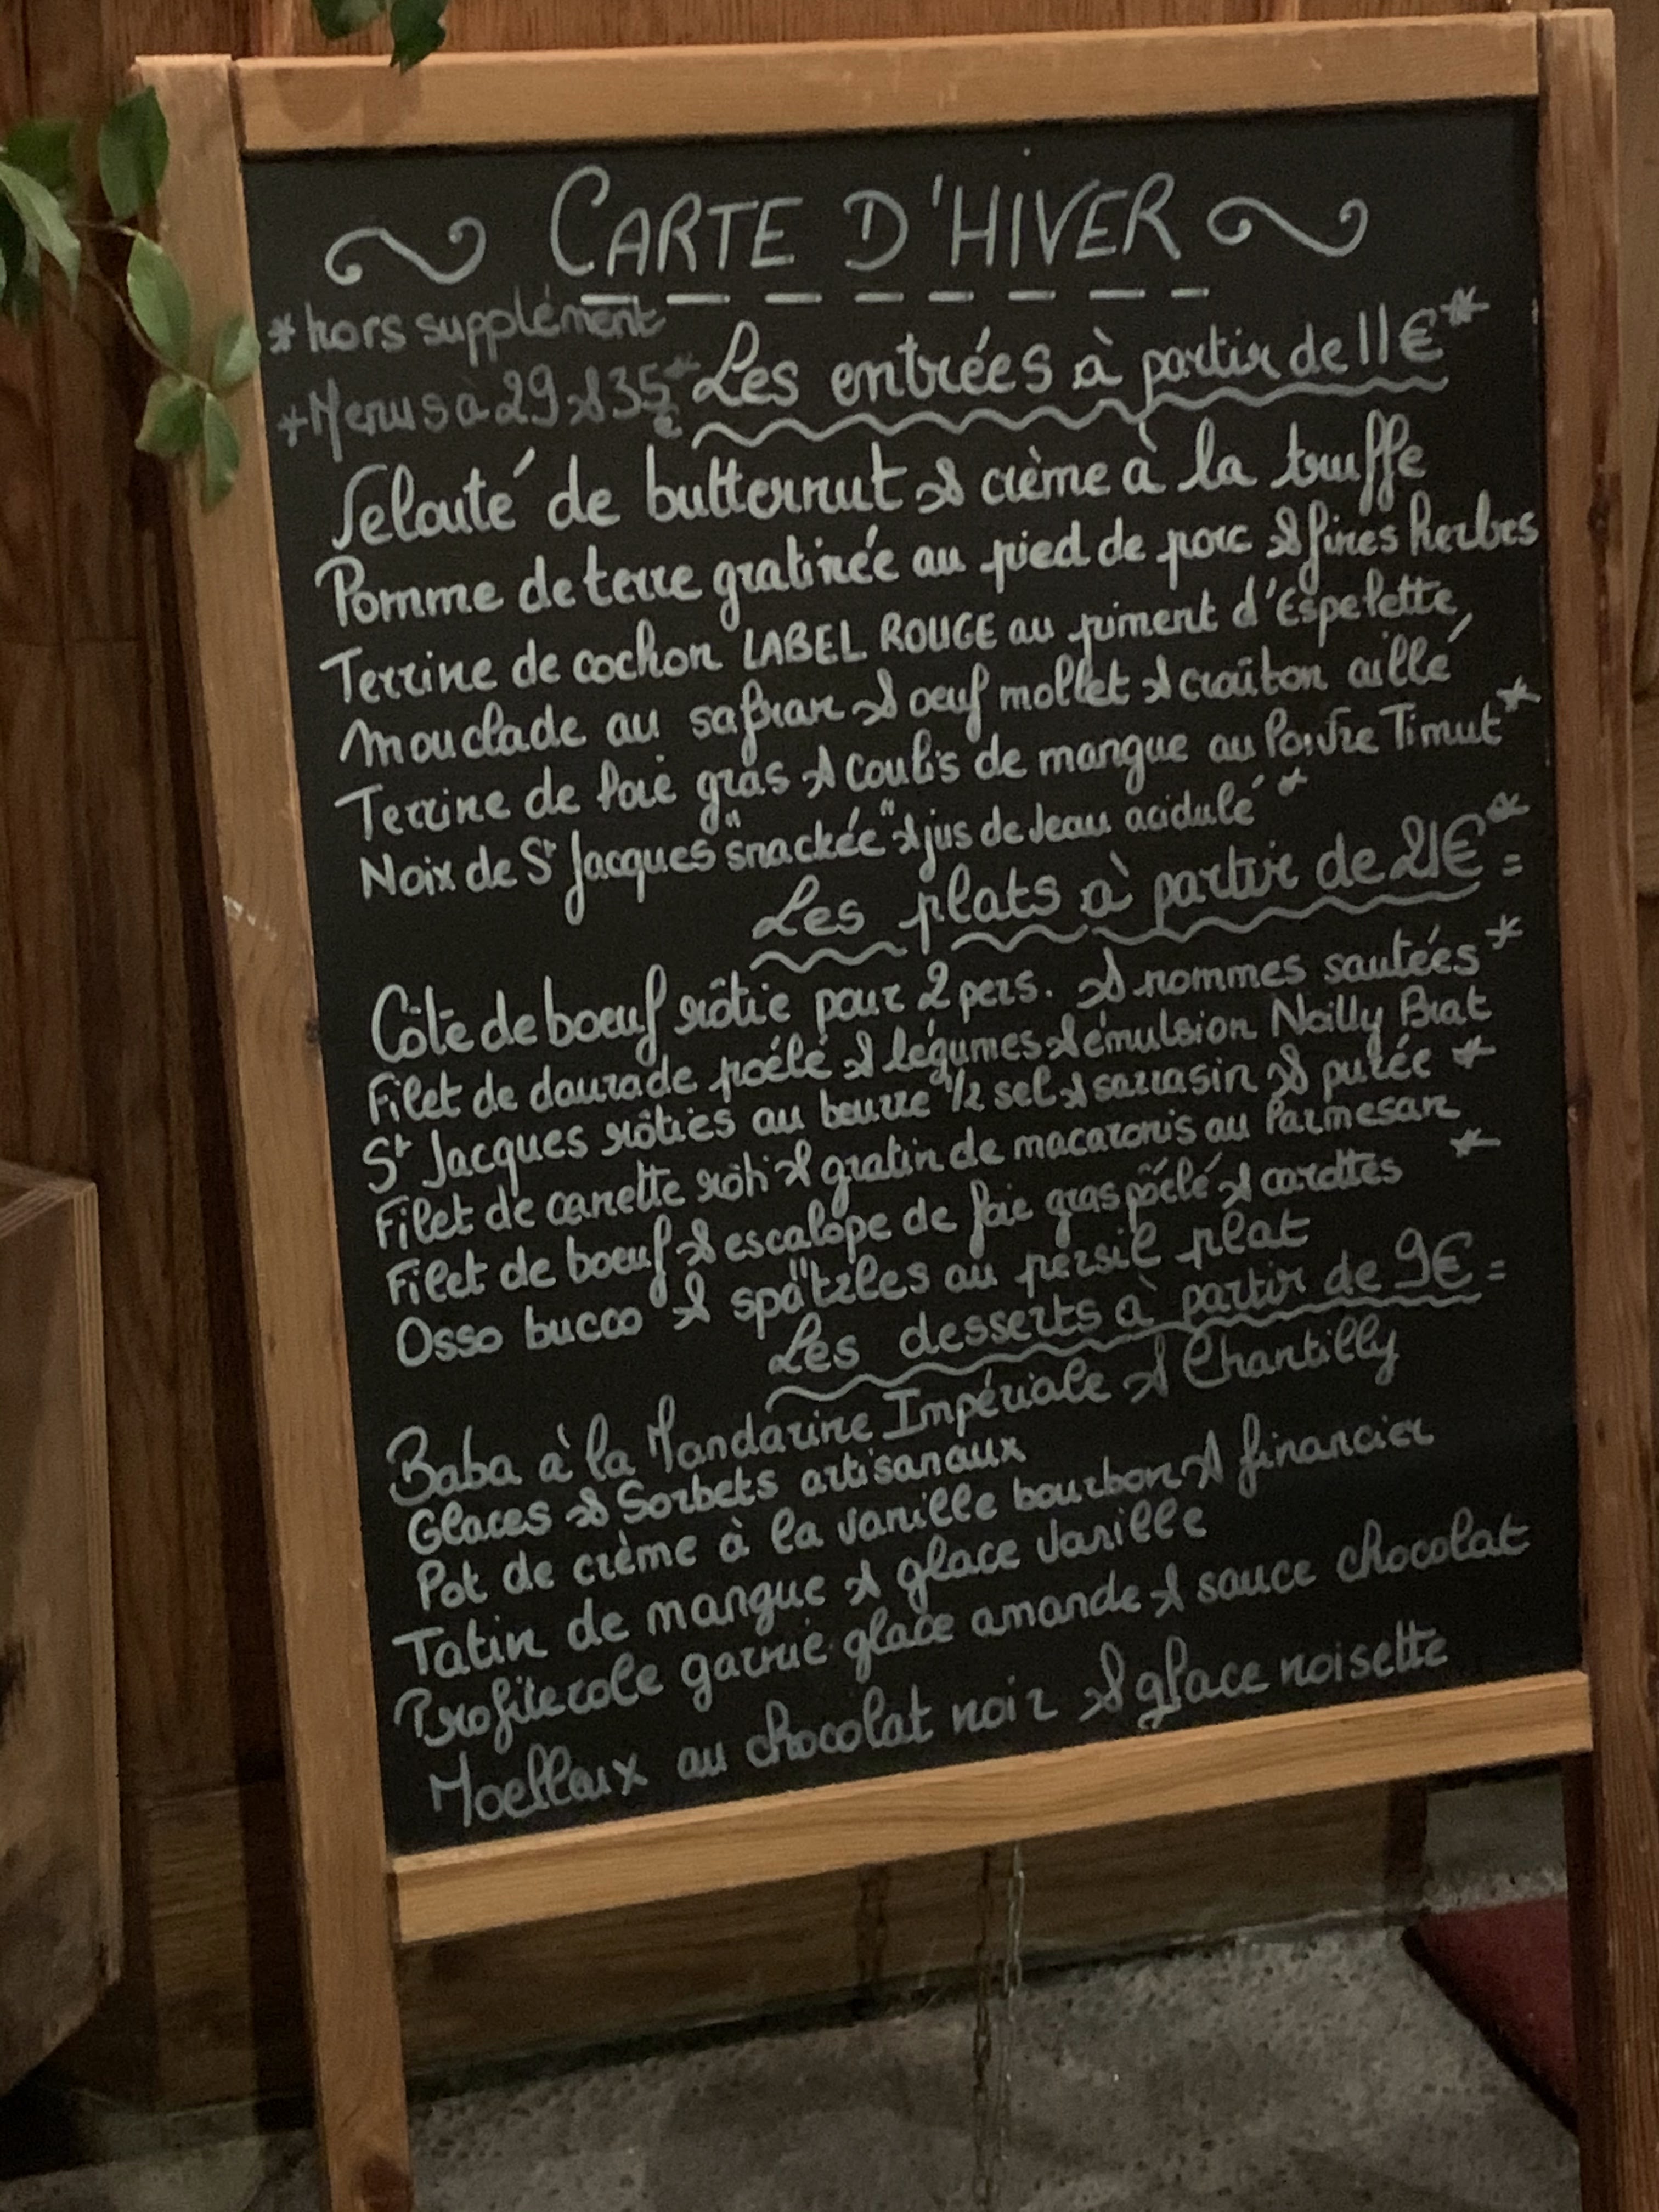 CARTE D'HIVER
*hors supplément
Les entrées à partir de 11€*
+Menus à 29 & 35€*
Velouté de butternut & crème à la truffe
Pomme de terre gratinée au pied de porc & fines herbes
Terrine de cochon LABEL ROUGE au piment d'Espelette
Mouclade au safran & oeuf mollet & croûton aillé
Terrine de foie gras & coulis de mangue au Poivre Timut*
Noix de St Jacques "snackée" & jus de veau acidulé*
Les plats à partir de 21€* =
Côte de boeuf rôtie pour 2 pers. & pommes sautées*
Filet de daurade poêlé & légumes & émulsion Noilly Prat
St Jacques rôties au beurre 1/2 sel & sarrasin & purée *
Filet de canette rôti & gratin de macaronis au Parmesan
Filet de boeuf & escalope de foie gras poêlé & carottes *
Osso bucco & spätzles au persil plat
Les desserts à partir de 9€ =
Baba à la Mandarine Impériale & Chantilly
Glaces & Sorbets artisanaux
Pot de crème à la vanille bourbon & financier
Tatin de mangue & glace vanille
Profiterole garnie glace amande & sauce chocolat
Moelleux au chocolat noir & glace noisette